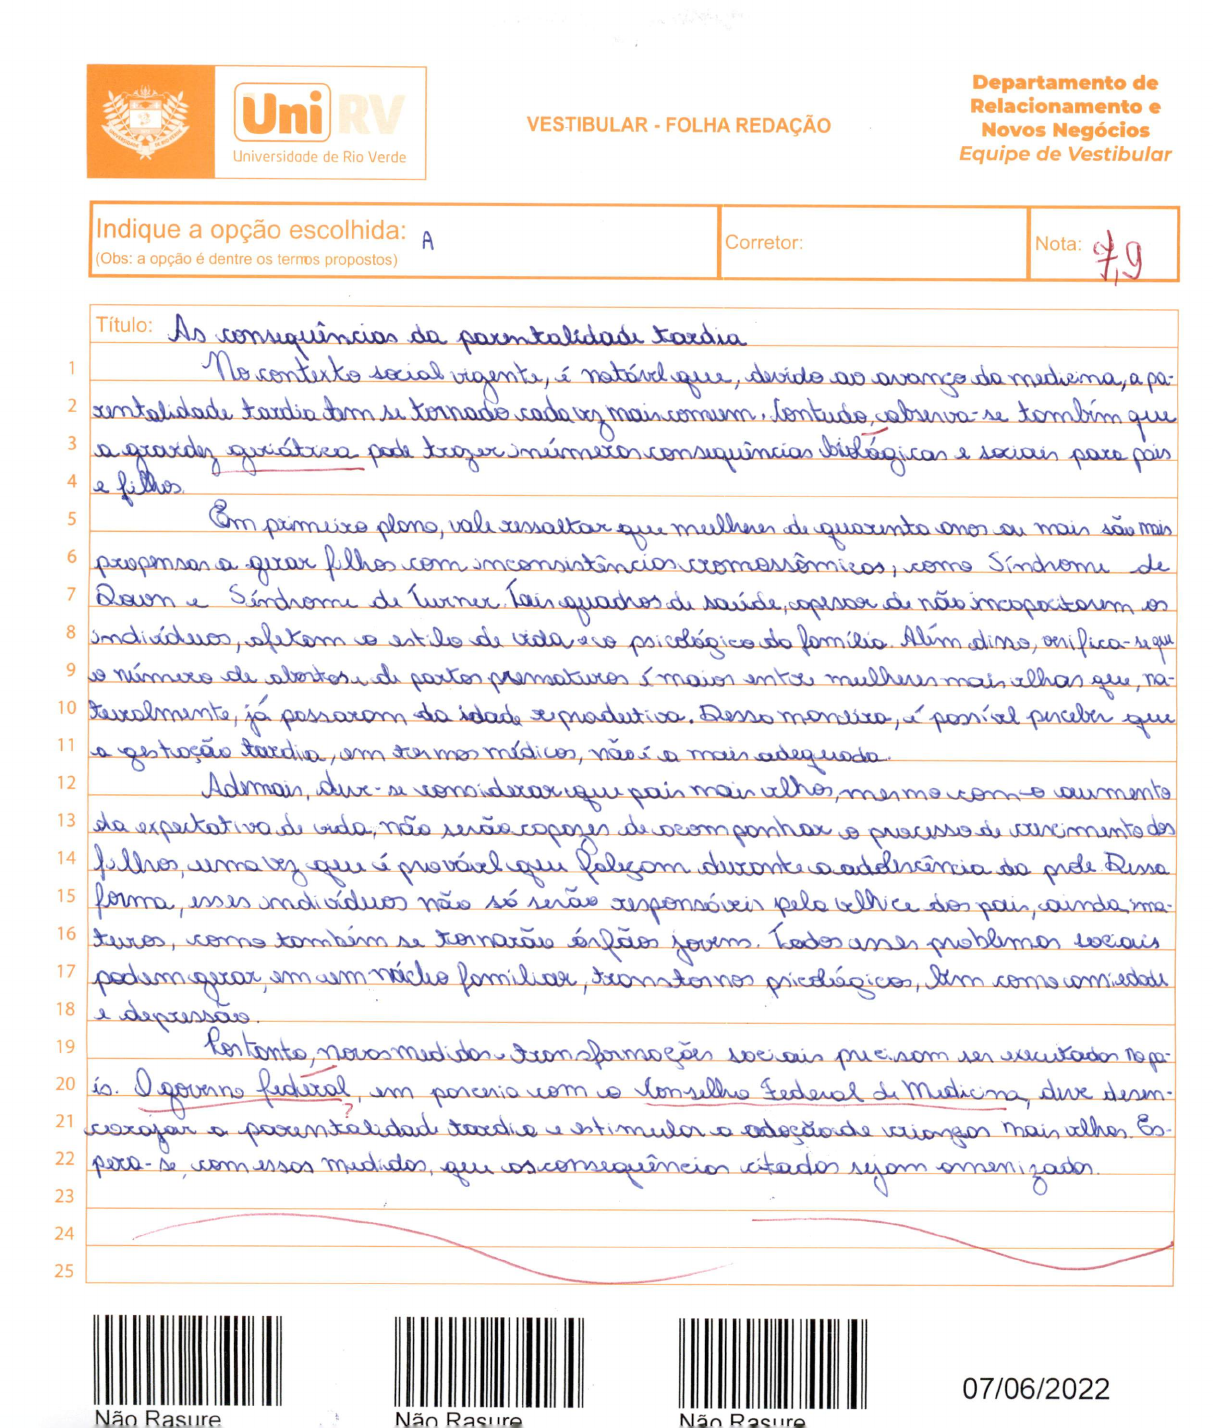 Uni RV
Universidade de Rio Verde
VESTIBULAR - FOLHA REDAÇÃO
Departamento de
Relacionamento e
Novos Negócios
Equipe de Vestibular
Indique a opção escolhida: A
(Obs: a opção é dentre os termos propostos)
Corretor:
Nota: 7,9
Título: As consequências da parentalidade tardia
1 No contexto social vigente, é notável que, devido ao avanço da medicina, a pa-
2 rentalidade tardia tem se tornado cada vez mais comum. Contudo, observa-se também que
3 a gravidez geriátrica pode trazer inúmeras consequências biológicas e sociais para pais
4 e filhos.
5 Em primeiro plano, vale ressaltar que mulheres de quarenta anos ou mais são mais
6 propensas a gerar filhos com inconsistências cromossômicas, como Síndrome de
7 Down e Síndrome de Turner. Tais quadros de saúde, apesar de não incapacitarem os
8 indivíduos, afetam o estilo de vida e o psicológico da família. Além disso, verifica-se que
9 o número de abortos e de partos prematuros é maior entre mulheres mais velhas que, na-
10 turalmente, já passaram da idade reprodutiva. Dessa maneira, é possível perceber que
11 a gestação tardia, em termos médicos, não é a mais adequada.
12 Ademais, deve-se considerar que pais mais velhos, mesmo com o aumento
13 da expectativa de vida, não serão capazes de acompanhar o processo de crescimento dos
14 filhos, uma vez que é provável que faleçam durante a adolescência da prole. Dessa
15 forma, esses indivíduos não só serão responsáveis pela velhice dos pais, ainda ima-
16 turos, como também se tornarão órfãos jovens. Todos esses problemas sociais
17 podem gerar, em um núcleo familiar, transtornos psicológicos, bem como ansiedade
18 e depressão.
19 Portanto, novas medidas e transformações sociais precisam ser executadas no pa-
20 ís. O governo federal, em parceria com o Conselho Federal de Medicina, deve desen-
?
21 corajar a parentalidade tardia e estimular a adoção de crianças mais velhas. Es-
22 pera-se, com essas medidas, que as consequências citadas sejam amenizadas.
23
24
25
Não Rasure
Não Rasure
Não Rasure
07/06/2022